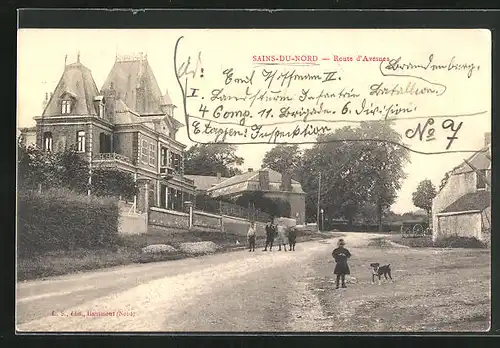 SAINS-DU-NORD — Route d'Avesnes
Brandenburg.
I. Emil Hoffmann II
I. Landsturm Infantrie Batallion,
4 Comp. 11. Brigade 6. division
Etappen: Inspektion No 9
E. S., édit., Hautmont (Nord)